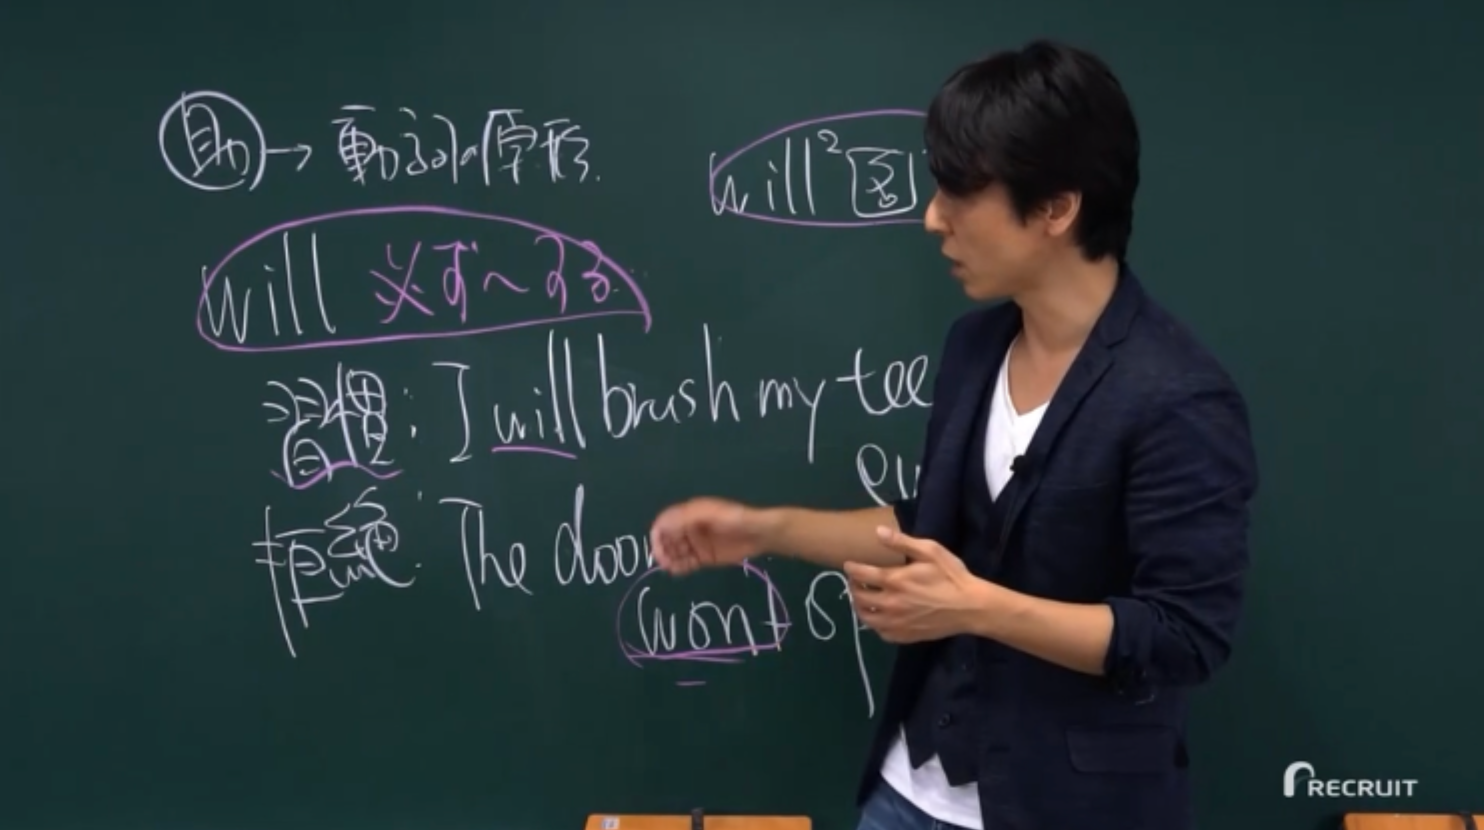 助→動詞の原形
will 必ず〜する
will²
習慣: I will brush my tee
拒絶: The door
won't op
RECRUIT